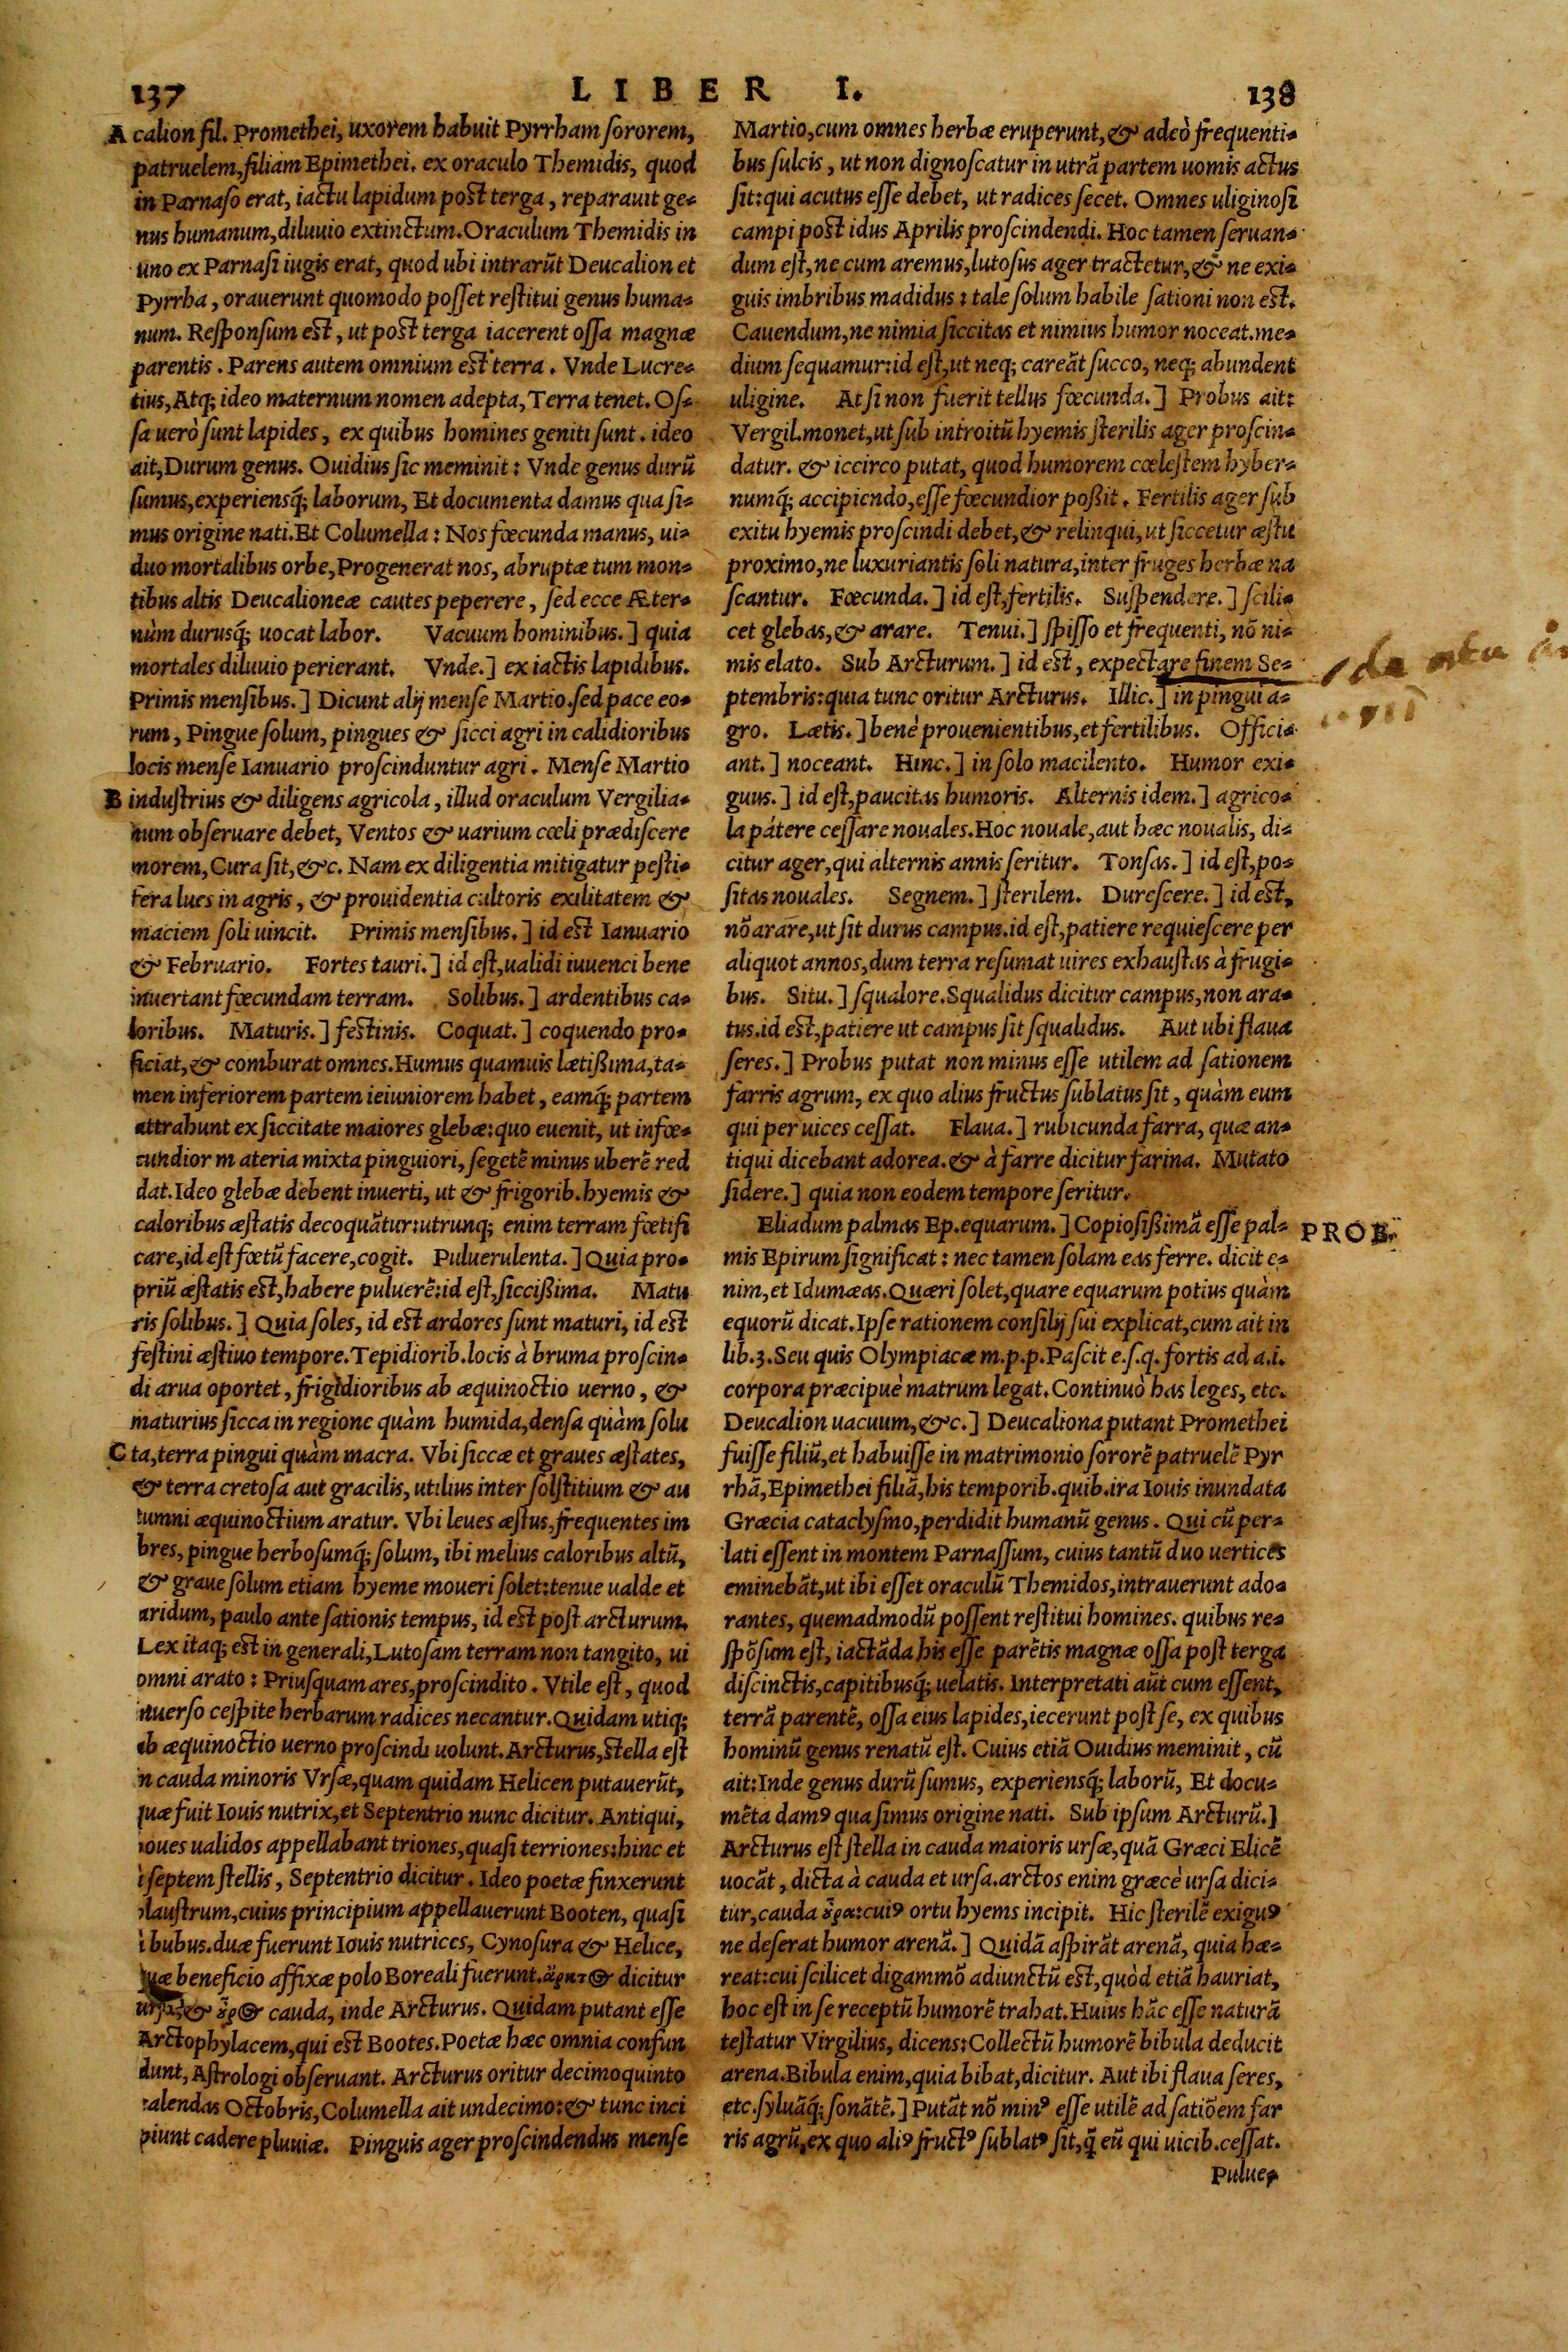 137
LIBER I.
138
A calion fil. Promethei, uxorem habuit Pyrrham sororem,
patruelem, filiam Epimethei. ex oraculo Themidis, quod
in Parnaso erat, iactu lapidum post terga, reparauit ge-
nus humanum, diluuio extinctum. Oraculum Themidis in
uno ex Parnasi iugis erat, quod ubi intrarūt Deucalion et
Pyrrha, orauerunt quomodo posset restitui genus huma-
num. Responsum est, ut post terga iacerent ossa magnæ
parentis. Parens autem omnium est terra. Vnde Lucre-
tius, Atq; ideo maternum nomen adepta, Terra tenet. Os-
sa uerò sunt lapides, ex quibus homines geniti sunt. ideo
ait, Durum genus. Ouidius sic meminit: Vnde genus durū
sumus, experiensq́; laborum, Et documenta damus qua si-
mus origine nati. Et Columella: Nos fœcunda manus, ui-
duo mortalibus orbe, Progenerat nos, abruptæ tum mon-
tibus altis Deucalioneæ cautes peperere, sed ecce Æter-
nùm durusq́; uocat labor. Vacuum hominibus.] quia
mortales diluuio perierant. Vnde.] ex iactis lapidibus.
Primis mensibus.] Dicunt alij mense Martio. sed pace eo-
rum, Pingue solum, pingues & sicci agri in calidioribus
locis mense Ianuario proscinduntur agri. Mense Martio
B industrius & diligens agricola, illud oraculum Vergilia-
num obseruare debet, Ventos & uarium cœli prædiscere
morem, Cura sit, &c. Nam ex diligentia mitigatur pesti-
fera lues in agris, & prouidentia cultoris exilitatem &
maciem soli uincit. Primis mensibus.] id est Ianuario
& Februario. Fortes tauri.] id est, ualidi iuuenci bene
inuertant fœcundam terram. Solibus.] ardentibus ca-
loribus. Maturis.] festinis. Coquat.] coquendo pro-
ficiat, & comburat omnes. Humus quamuis lætißima, ta-
men inferiorem partem ieiuniorem habet, eamq́; partem
attrahunt ex siccitate maiores glebæ: quo euenit, ut infœ-
cundior materia mixta pinguiori, segetē minus uberē red
dat. Ideo glebæ debent inuerti, ut & frigorib. hyemis &
caloribus æstatis decoquātur: utrunq; enim terram fœtifi
care, id est fœtū facere, cogit. Puluerulenta.] Quia pro-
priū æstatis est, habere puluerē: id est, siccißima. Matu
ris solibus.] Quia soles, id est ardores sunt maturi, id est
festini æstiuo tempore. Tepidiorib. locis à bruma proscin-
di arua oportet, frigidioribus ab æquinoctio uerno, &
maturius sicca in regione quàm humida, densa quàm solu
C ta, terra pingui quàm macra. Vbi siccæ et graues æstates,
& terra cretosa aut gracilis, utilius inter solstitium & au
tumni æquinoctium aratur. Vbi leues æstus, frequentes im
bres, pingue herbosumq́; solum, ibi melius caloribus altū,
& graue solum etiam hyeme moueri solet: tenue ualde et
aridum, paulo ante sationis tempus, id est post arcturum.
Lex itaq; est in generali, Lutosam terram non tangito, ui
omni arato: Priusquam ares, proscindito. Vtile est, quod
inuerso cespite herbarum radices necantur. Quidam utiq;
ab æquinoctio uerno proscindi uolunt. Arcturus, stella est
in cauda minoris Vrsæ, quam quidam Helicen putauerūt,
quæ fuit Iouis nutrix, et Septentrio nunc dicitur. Antiqui,
boues ualidos appellabant triones, quasi terriones: hinc et
à septem stellis, Septentrio dicitur. Ideo poetæ finxerunt
plaustrum, cuius principium appellauerunt Booten, quasi
à bubus. duæ fuerunt Iouis nutrices, Cynosura & Helice,
quæ beneficio affixæ polo Boreali fuerunt. ἄρκτος dicitur
ursa, & ὄρος cauda, inde Arcturus. Quidam putant esse
Arctophylacem, qui est Bootes. Poetæ hæc omnia confun
dunt, Astrologi obseruant. Arcturus oritur decimoquinto
calendas Octobris, Columella ait undecimo: & tunc inci
piunt cadere pluuiæ. Pinguis ager proscindendus mense
Martio, cum omnes herbæ eruperunt, & adeò frequenti-
bus sulcis, ut non dignoscatur in utrā partem uomis actus
sit: qui acutus esse debet, ut radices secet. Omnes uliginosi
campi post idus Aprilis proscindendi. Hoc tamen seruan-
dum est, ne cum aremus, lutosus ager tractetur, & ne exi-
guis imbribus madidus: tale solum habile sationi non est.
Cauendum, ne nimia siccitas et nimius humor noceat. me-
dium sequamur: id est, ut neq; careāt succo, neq; abundent
uligine. At si non fuerit tellus fœcunda.] Probus ait:
Vergil. monet, ut sub introitū hyemis sterilis ager proscin-
datur. & iccirco putat, quod humorem cœlestem hyber-
numq́; accipiendo, esse fœcundior poßit. Fertilis ager sub
exitu hyemis proscindi debet, & relinqui, ut siccetur æstu
proximo, ne luxuriantis soli natura, inter fruges herbæ na
scantur. Fœcunda.] id est, fertilis. Suspendere.] scili-
cet glebas, & arare. Tenui.] spisso et frequenti, nō ni-
mis elato. Sub Arcturum.] id est, expectare finem Se-
ptembris: quia tunc oritur Arcturus. Illic.] in pingui a-
gro. Lætis.] benè prouenientibus, et fertilibus. Offici-
ant.] noceant. Hinc.] in solo macilento. Humor exi-
guus.] id est, paucitas humoris. Alternis idem.] agrico-
la pátere cessare nouales. Hoc nouale, aut hæc noualis, di-
citur ager, qui alternis annis seritur. Tonsas.] id est, po-
sitas nouales. Segnem.] sterilem. Durescere.] id est,
nō arare, ut sit durus campus. id est, patiere requiescere per
aliquot annos, dum terra resumat uires exhaustas à frugi-
bus. Situ.] squalore. Squalidus dicitur campus, non ara-
tus. id est, patiere ut campus sit squalidus. Aut ubi flaua
seres.] Probus putat non minus esse utilem ad sationem
farris agrum, ex quo alius fructus sublatus sit, quàm eum
qui per uices cessat. Flaua.] rubicunda farra, quæ an-
tiqui dicebant adorea. & à farre dicitur farina. Mutato
sidere.] quia non eodem tempore seritur.
Eliadum palmas Ep. equarum.] Copiosißimā esse pal-
PROB.
mis Epirum significat: nec tamen solam eas ferre. dicit e-
nim, et Idumæas. Quæri solet, quare equarum potius quàm
equorū dicat. Ipse rationem consilij sui explicat, cum ait in
lib. 3. Seu quis Olympiacæ m.p.p. Pascit e.s.q. fortis ad a.i.
corpora præcipuè matrum legat. Continuò has leges, etc.
Deucalion uacuum, &c.] Deucaliona putant Promethei
fuisse filiū, et habuisse in matrimonio sororē patruelē Pyr
rhā, Epimethei filiā, his temporib. quib. ira Iouis inundata
Græcia cataclysmo, perdidit humanū genus. Qui cū per-
lati essent in montem Parnassum, cuius tantū duo uertices
eminebāt, ut ibi esset oraculū Themidos, intrauerunt ado-
rantes, quemadmodū possent restitui homines. quibus re-
spōsum est, iactāda his esse parētis magnæ ossa post terga
discinctis, capitibusq́; uelatis. Interpretati aūt cum essent,
terrā parentē, ossa eius lapides, iecerunt post se, ex quibus
hominū genus renatū est. Cuius etiā Ouidius meminit, cū
ait: Inde genus durū sumus, experiensq́; laborū, Et docu-
mēta damꝰ qua simus origine nati. Sub ipsum Arcturū.]
Arcturus est stella in cauda maioris ursæ, quā Græci Elicē
uocāt, dicta à cauda et ursa. arctos enim græcè ursa dici-
tur, cauda ὄρα: cuiꝰ ortu hyems incipit. Hic sterilē exiguꝰ
ne deserat humor arenā.] Quidā aspirāt arenā, quia hæ-
reat: cui scilicet digammō adiunctū est, quòd etiā hauriat,
hoc est in se receptū humorē trahat. Huius hāc esse naturā
testatur Virgilius, dicens: Collectū humorē bibula deducit
arena. Bibula enim, quia bibat, dicitur. Aut ibi flaua seres,
etc. syluāq́; sonātē.] Putāt nō minꝰ esse utilē ad satiōem far
ris agrū, ex quo aliꝰ fructꝰ sublatꝰ sit, q̄ eū qui uicib. cessat.
Pulue-